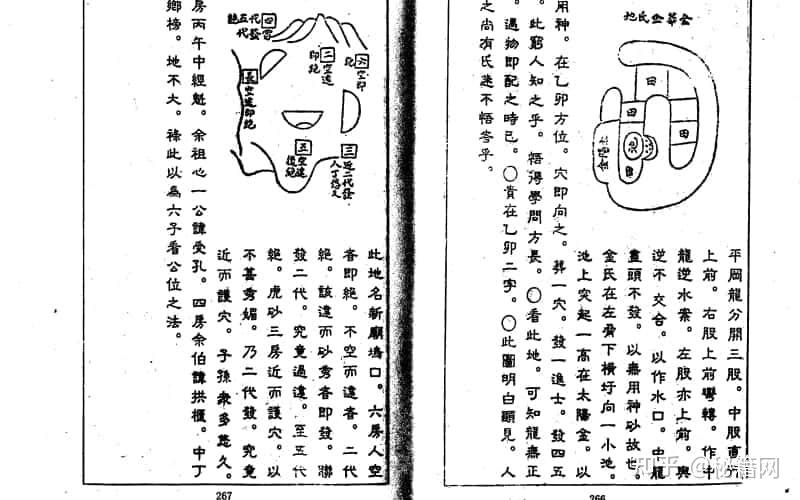 金華金氏地
田
田
田
池
田
平岡龍分開三股。中股直亣
上前。右股上前彎轉。作中
龍逆水案。左股亦上前。與
逆不交合。以作水口。中龍
盡頭不發。以無用神砂故也。
金氏在左脅下橫圩向一小池。
池上突起一高在太陽金。以
用神。在乙卯方位。穴即向之。葬一穴。發一進士。發四五
。此窮人知之乎。悟得學問方長。〇看此地。可知龍無正
。遇物即配之時已。〇貴在乙卯二字。〇此圖明白顯見。人
之尚有氏迷不悟岺乎。
266
四空
發五代
代絕
二空遠
即絕
六空即
絕
長空遠即絕
五空遠
後絕
三近二代發
人丁悠久
此地名新廟塢口。六房人空
者即絕。不空而遠者。二代
絕。該遠而砂秀者即發。聯
發二代。究竟過遠。至五代
絕。虎砂三房近而護穴。以
不甚秀媚。乃二代發。究竟
近而護穴。子孫衆多悠久。
房丙午中經魁。余祖心一公諱受孔。四房余伯諱拱櫃。中丁
鄉榜。地不大。祿此以為六子看公位之法。
267
知乎 @秘籍网